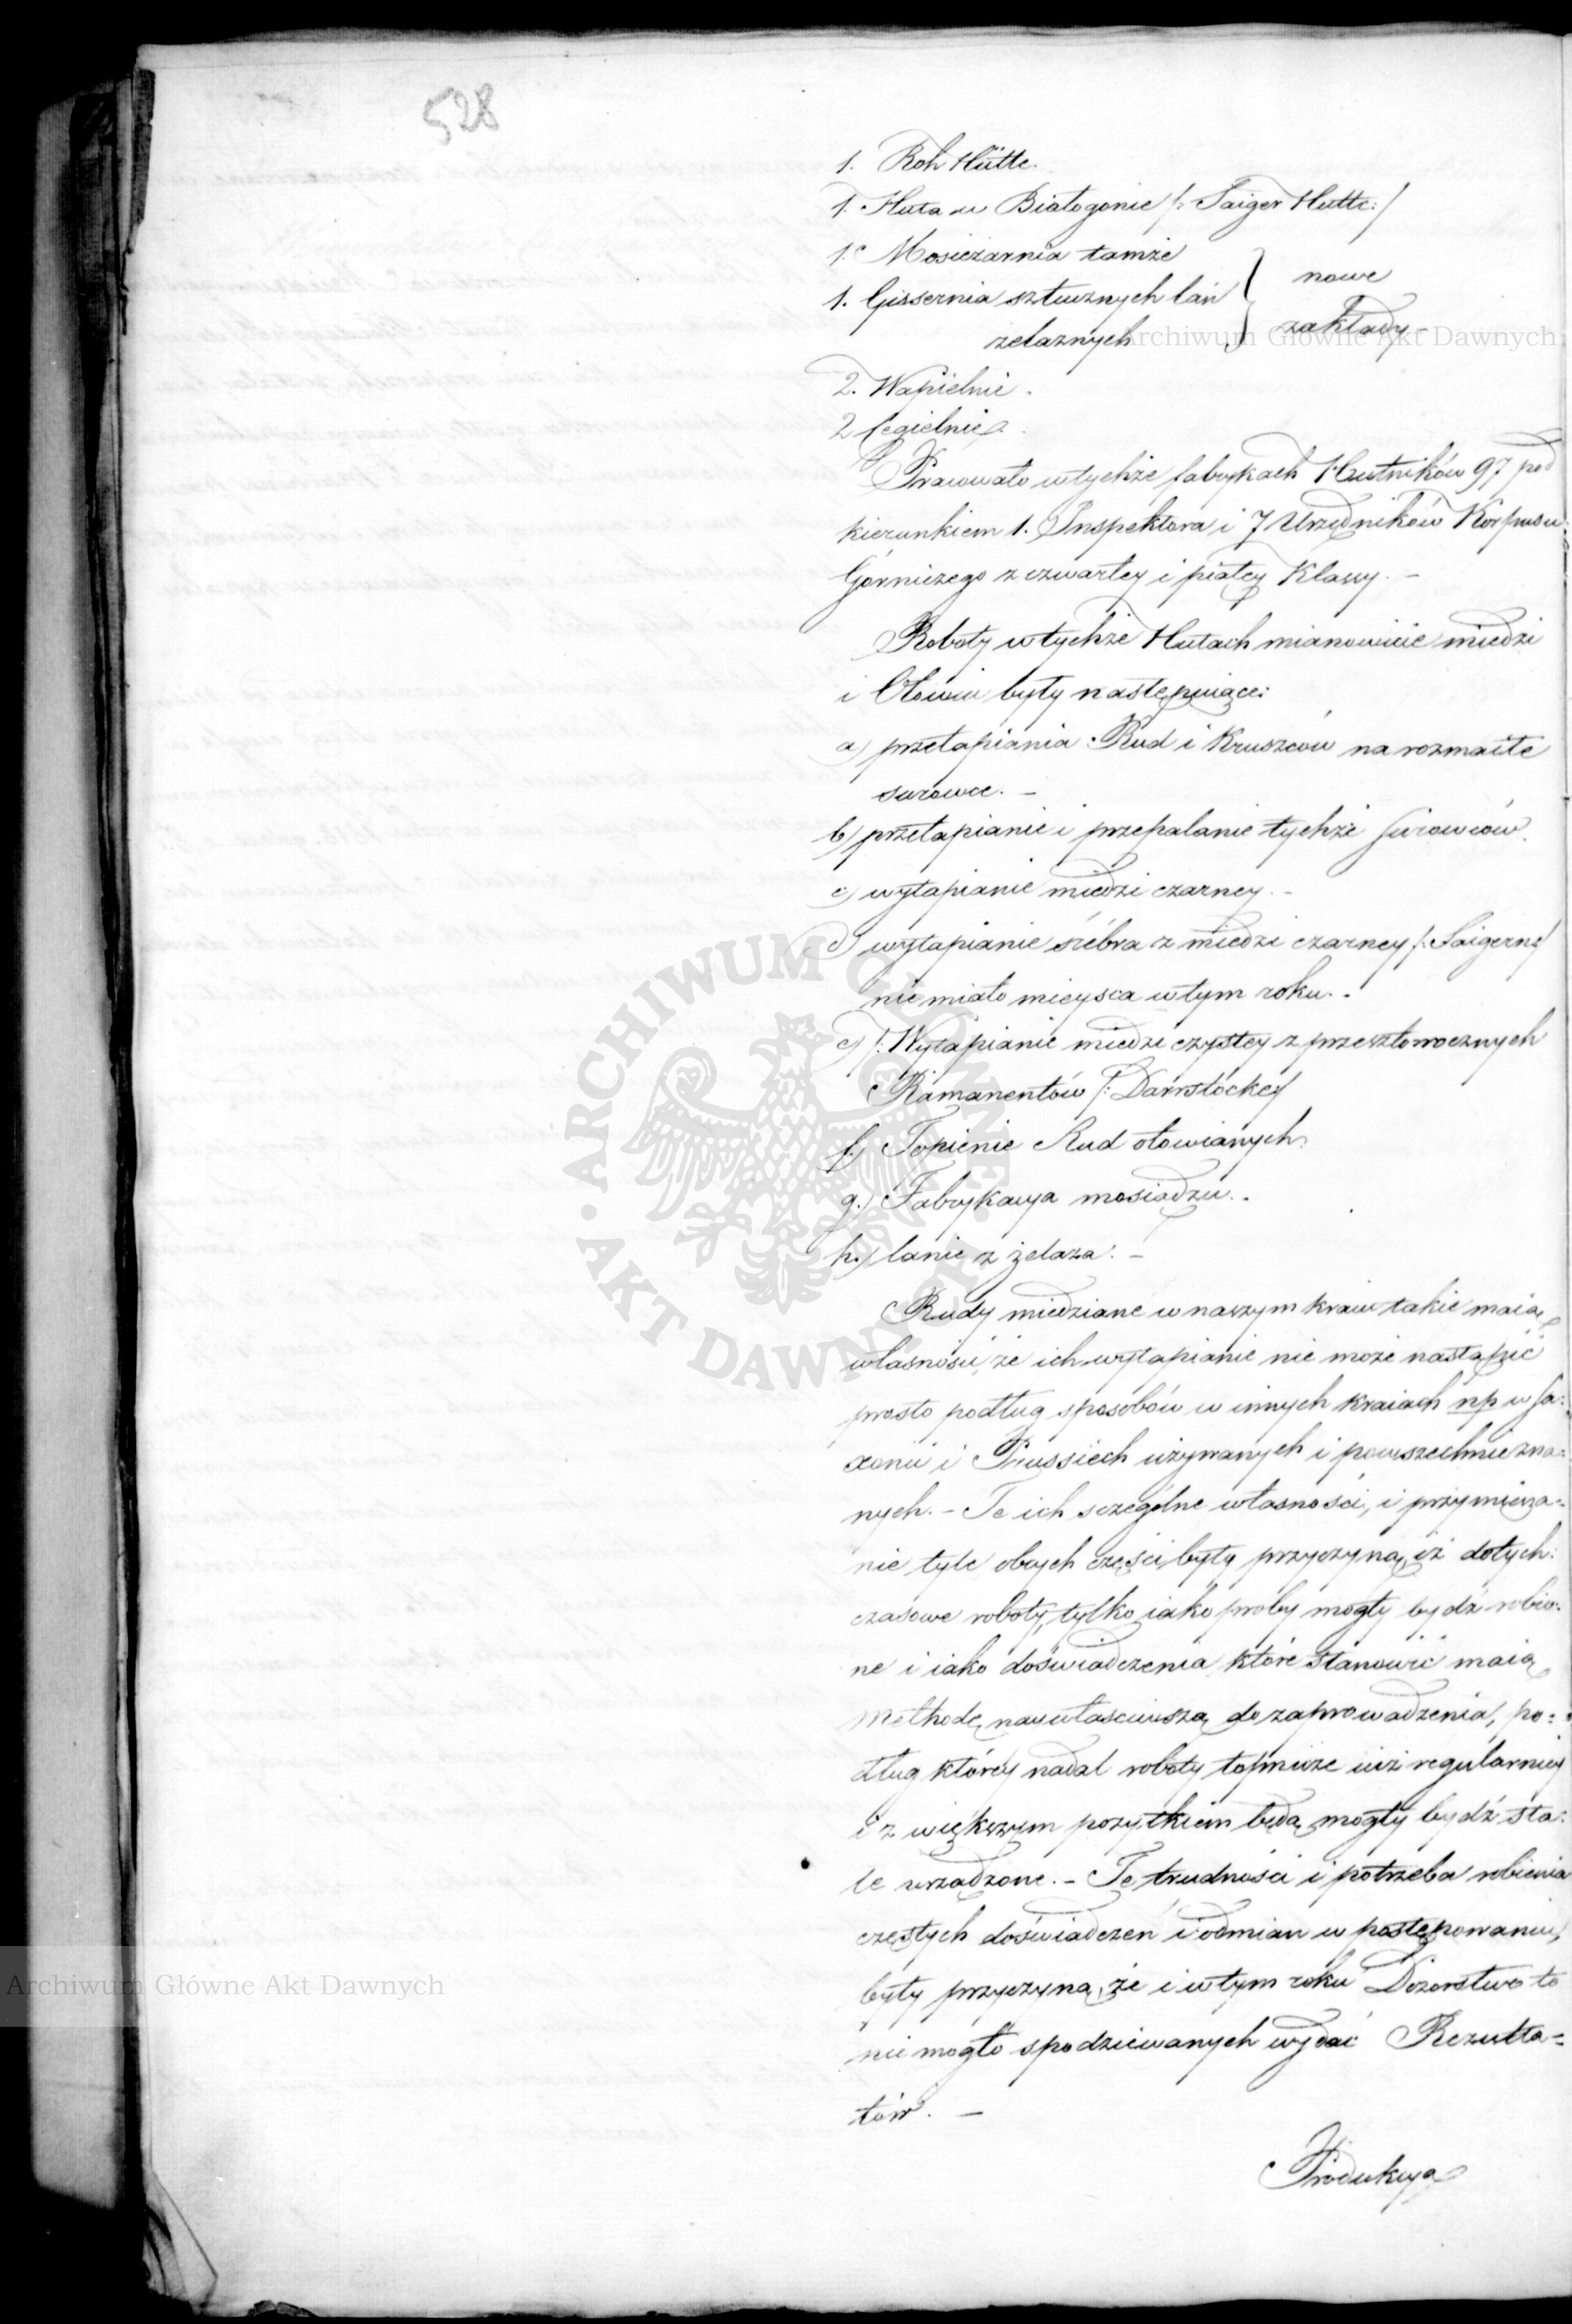 528
1. Roh Hütte.
1. Huta w Białogonie /: Saiger Hutte:/
1. Mosiężarnia tamże
1. Gissernia sztucznych lań } nowe
żelaznych zakłady -
2. Wapielnie.
2 Cegielnie.
Pracowało w tychże fabrykach Hutników 97 pod
kierunkiem 1. Inspektora i 7 Urzędników Korpusu
Górniczego z czwartey i piątey Klassy. -
Roboty w tychże Hutach mianowicie miedzi
i Ołowiu były następuiące:
a) przetapiania Rud i Kruszców na rozmaite
surowce. -
b) przetapianie i przepalanie tychże surowców.
c) wytapianie miedzi czarney. -
d) wytapianie śrébra z miedzi czarney /: Saigern:/
nie miało mieysca w tym roku. -
e) /: Wytapianie miedzi czystey z przeszłorocznych
Ramanentów /: Darrstöcke:/
f.) Topienie Rud ołowianych.
g.) Fabrykacya mosiądzu. -
h.) lanie z żelaza. -
Rudy miedziane w naszym kraiu takie maią
własności, że ich wytapianie nie może nastąpić
prosto podług sposobów w innych kraiach np w Sa:
xonii i Prussiech używanych i powszechnie zna:
nych. - Te ich szczególne własności, i przymięsza:
nie tyle obcych części były przyczyną, iż dotych:
czasowe roboty, tylko iako próby mogły bydź robio:
ne i iako doświadczenia które stanowić maią
Methodę naywłaściwszą do zaprowadzenia, po:
dług którey nadal roboty topnicze iuż regularniey
i z większym pożytkiem będą mogły bydź sta:
le urządzone. - Te trudności i potrzeba robienia
częstych doświadczeń i odmian w postępowaniu,
były przyczyną, że i w tym roku Dozorstwo to
nie mogło spodziewanych wydać Rezulta=
tów. -
Produkcya
Archiwum Główne Akt Dawnych
Archiwum Główne Akt Dawnych
ARCHIWUM GŁÓWNE AKT DAWNYCH